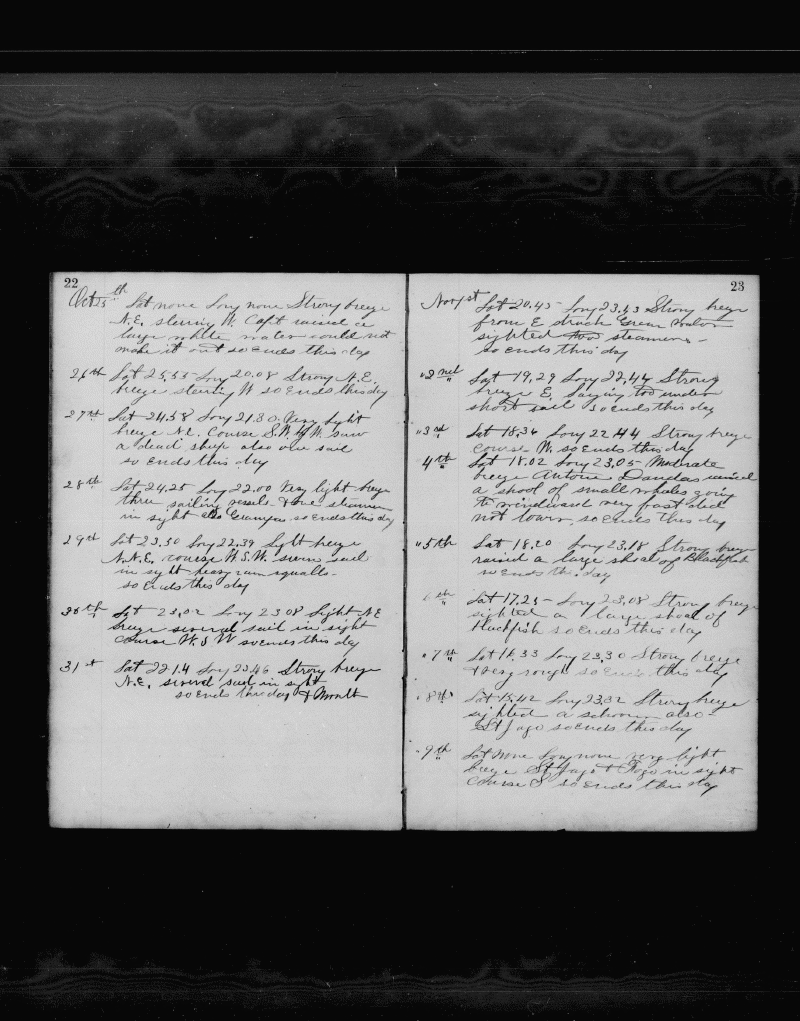 22
Oct 25th Lat none Long none Strong breeze
N.E. stering W. Capt raised a
large white water could not
make it out so Ends this day
26th Lat 25.55 Long 20.08 Strong N.E.
breeze stering W so Ends this day
27th Lat 24.58 Long 21.30 Very light
breeze N.E. Course S.W. by W. saw
a dead sheep also one sail
so ends this day
28th Lat 24.25 Long 22.00 Very light breeze
three sailing vessels & one steamer
in sight also Grampus so ends this day
29th Lat 23.50 Long 22.39 Light breeze
N.N.E. course W.S.W. seven sail
in sight heavy rain squalls
so Ends this day
30th Lat 23.02 Long 23.08 Light N.E.
breeze several sail in sight
course W.S.W so ends this day
31st Lat 22.14 Long 23.46 Strong breeze
N.E. several sail in sight
so Ends this day & Month
23
Nov 1st Lat 20.45 Long 23.43 Strong breeze
from E struck Green water
sighted two steamers
so ends this day
" 2nd Lat 19.29 Long 22.44 Strong
breeze E. Laying too under
short sail so ends this day
" 3rd Lat 18.36 Long 22.44 Strong breeze
course W. so Ends this day
" 4th Lat 18.02 Long 23.05 Moderate
breeze Antoine Dandas raised
a shoal of small whales going
to windward very fast did
not lower so Ends this day
" 5th Lat 18.20 Long 23.18 Strong breeze
raised a large shoal of Blackfish
so ends this day
6th Lat 17.25 Long 23.08 Strong breeze
sighted a large shoal of
blackfish so Ends this day
" 7th Lat 16.33 Long 23.30 Strong breeze
& very rough so Ends this day
" 8th Lat 15.42 Long 23.32 Strong breeze
sighted a schooner also
St Jago so ends this day
" 9th Lat None Long none very light
breeze St Jago & Fogo in sight
course S so Ends this day